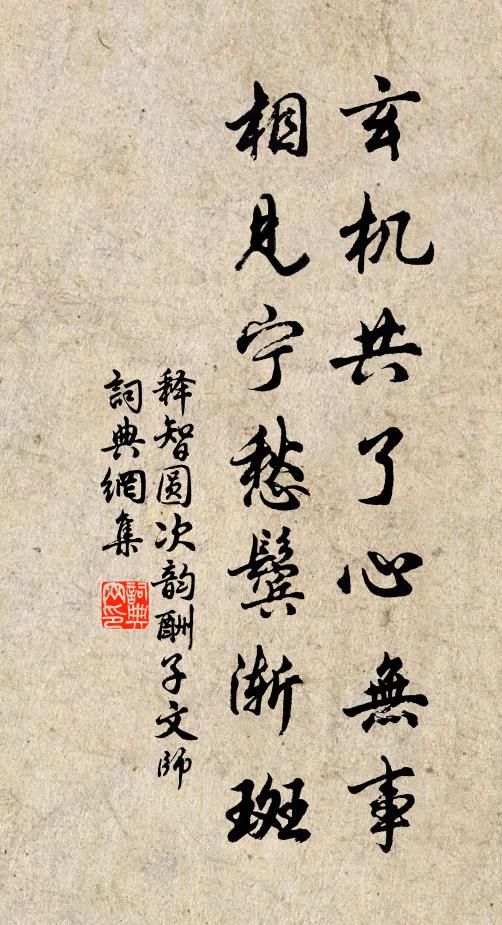 玄机共了心無事
相见宁愁鬓渐斑
释智圆次韵酬子文师
詞典網集
詞典網印